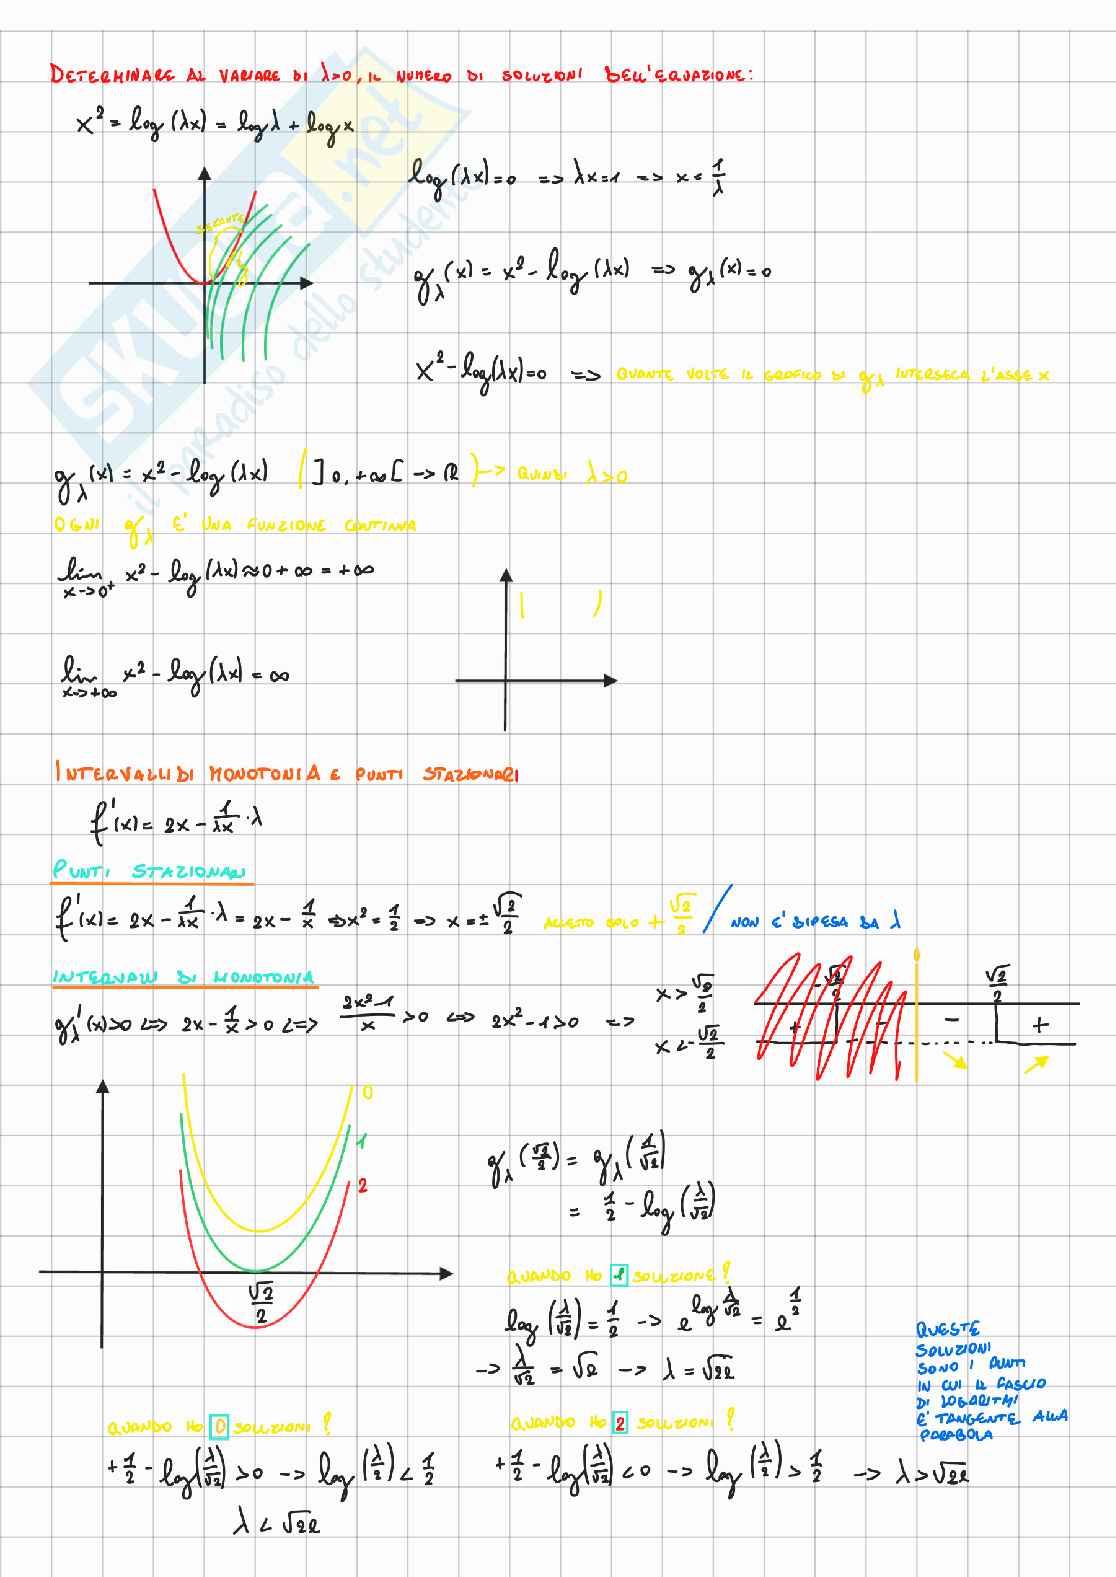 DETERMINARE AL VARIARE DI λ>0, IL NUMERO DI SOLUZIONI DELL'EQUAZIONE:
x² = log(λx) = log λ + log x
log(λx)=0 => λx=1 => x = 1/λ
SECANTE
g_λ(x) = x² - log(λx) => g_λ(x)=0
x² - log(λx)=0 => QUANTE VOLTE IL GRAFICO DI g_λ INTERSECA L'ASSE X
g_λ(x) = x² - log(λx) ( ]0, +∞[ -> ℝ ) -> QUINDI λ>0
OGNI g_λ E' UNA FUNZIONE CONTINUA
lim x->0⁺ x² - log(λx) ≈ 0 + ∞ = +∞
lim x->+∞ x² - log(λx) = ∞
INTERVALLI DI MONOTONIA E PUNTI STAZIONARI
f'(x) = 2x - 1/λx · λ
PUNTI STAZIONARI
f'(x) = 2x - 1/λx · λ = 2x - 1/x => x² = 1/2 => x = ± √2/2 ACCETTO SOLO + √2/2 / NON E' DIPESA DA λ
INTERVALLI DI MONOTONIA
g_λ'(x)>0 <=> 2x - 1/x > 0 <=> 2x²-1/x > 0 <=> 2x²-1>0 =>
x > √2/2
x < -√2/2
-√2/2 0 √2/2
+ - - +
0
1
2
√2/2
g_λ(√2/2) = g_λ(1/√2)
= 1/2 - log(λ/√2)
QUANDO HO 1 SOLUZIONE?
log(λ/√2) = 1/2 -> e^log λ/√2 = e^1/2
-> λ/√2 = √e -> λ = √2e
QUESTE
SOLUZIONI
SONO I PUNTI
IN CUI IL FASCIO
DI LOGARITMI
E' TANGENTE ALLA
PARABOLA
QUANDO HO 0 SOLUZIONI?
+1/2 - log(λ/√2) > 0 -> log(λ/2) < 1/2
λ < √2e
QUANDO HO 2 SOLUZIONI?
+1/2 - log(λ/√2) < 0 -> log(λ/2) > 1/2 -> λ > √2e
SKUOLA.net
il paradiso dello studente